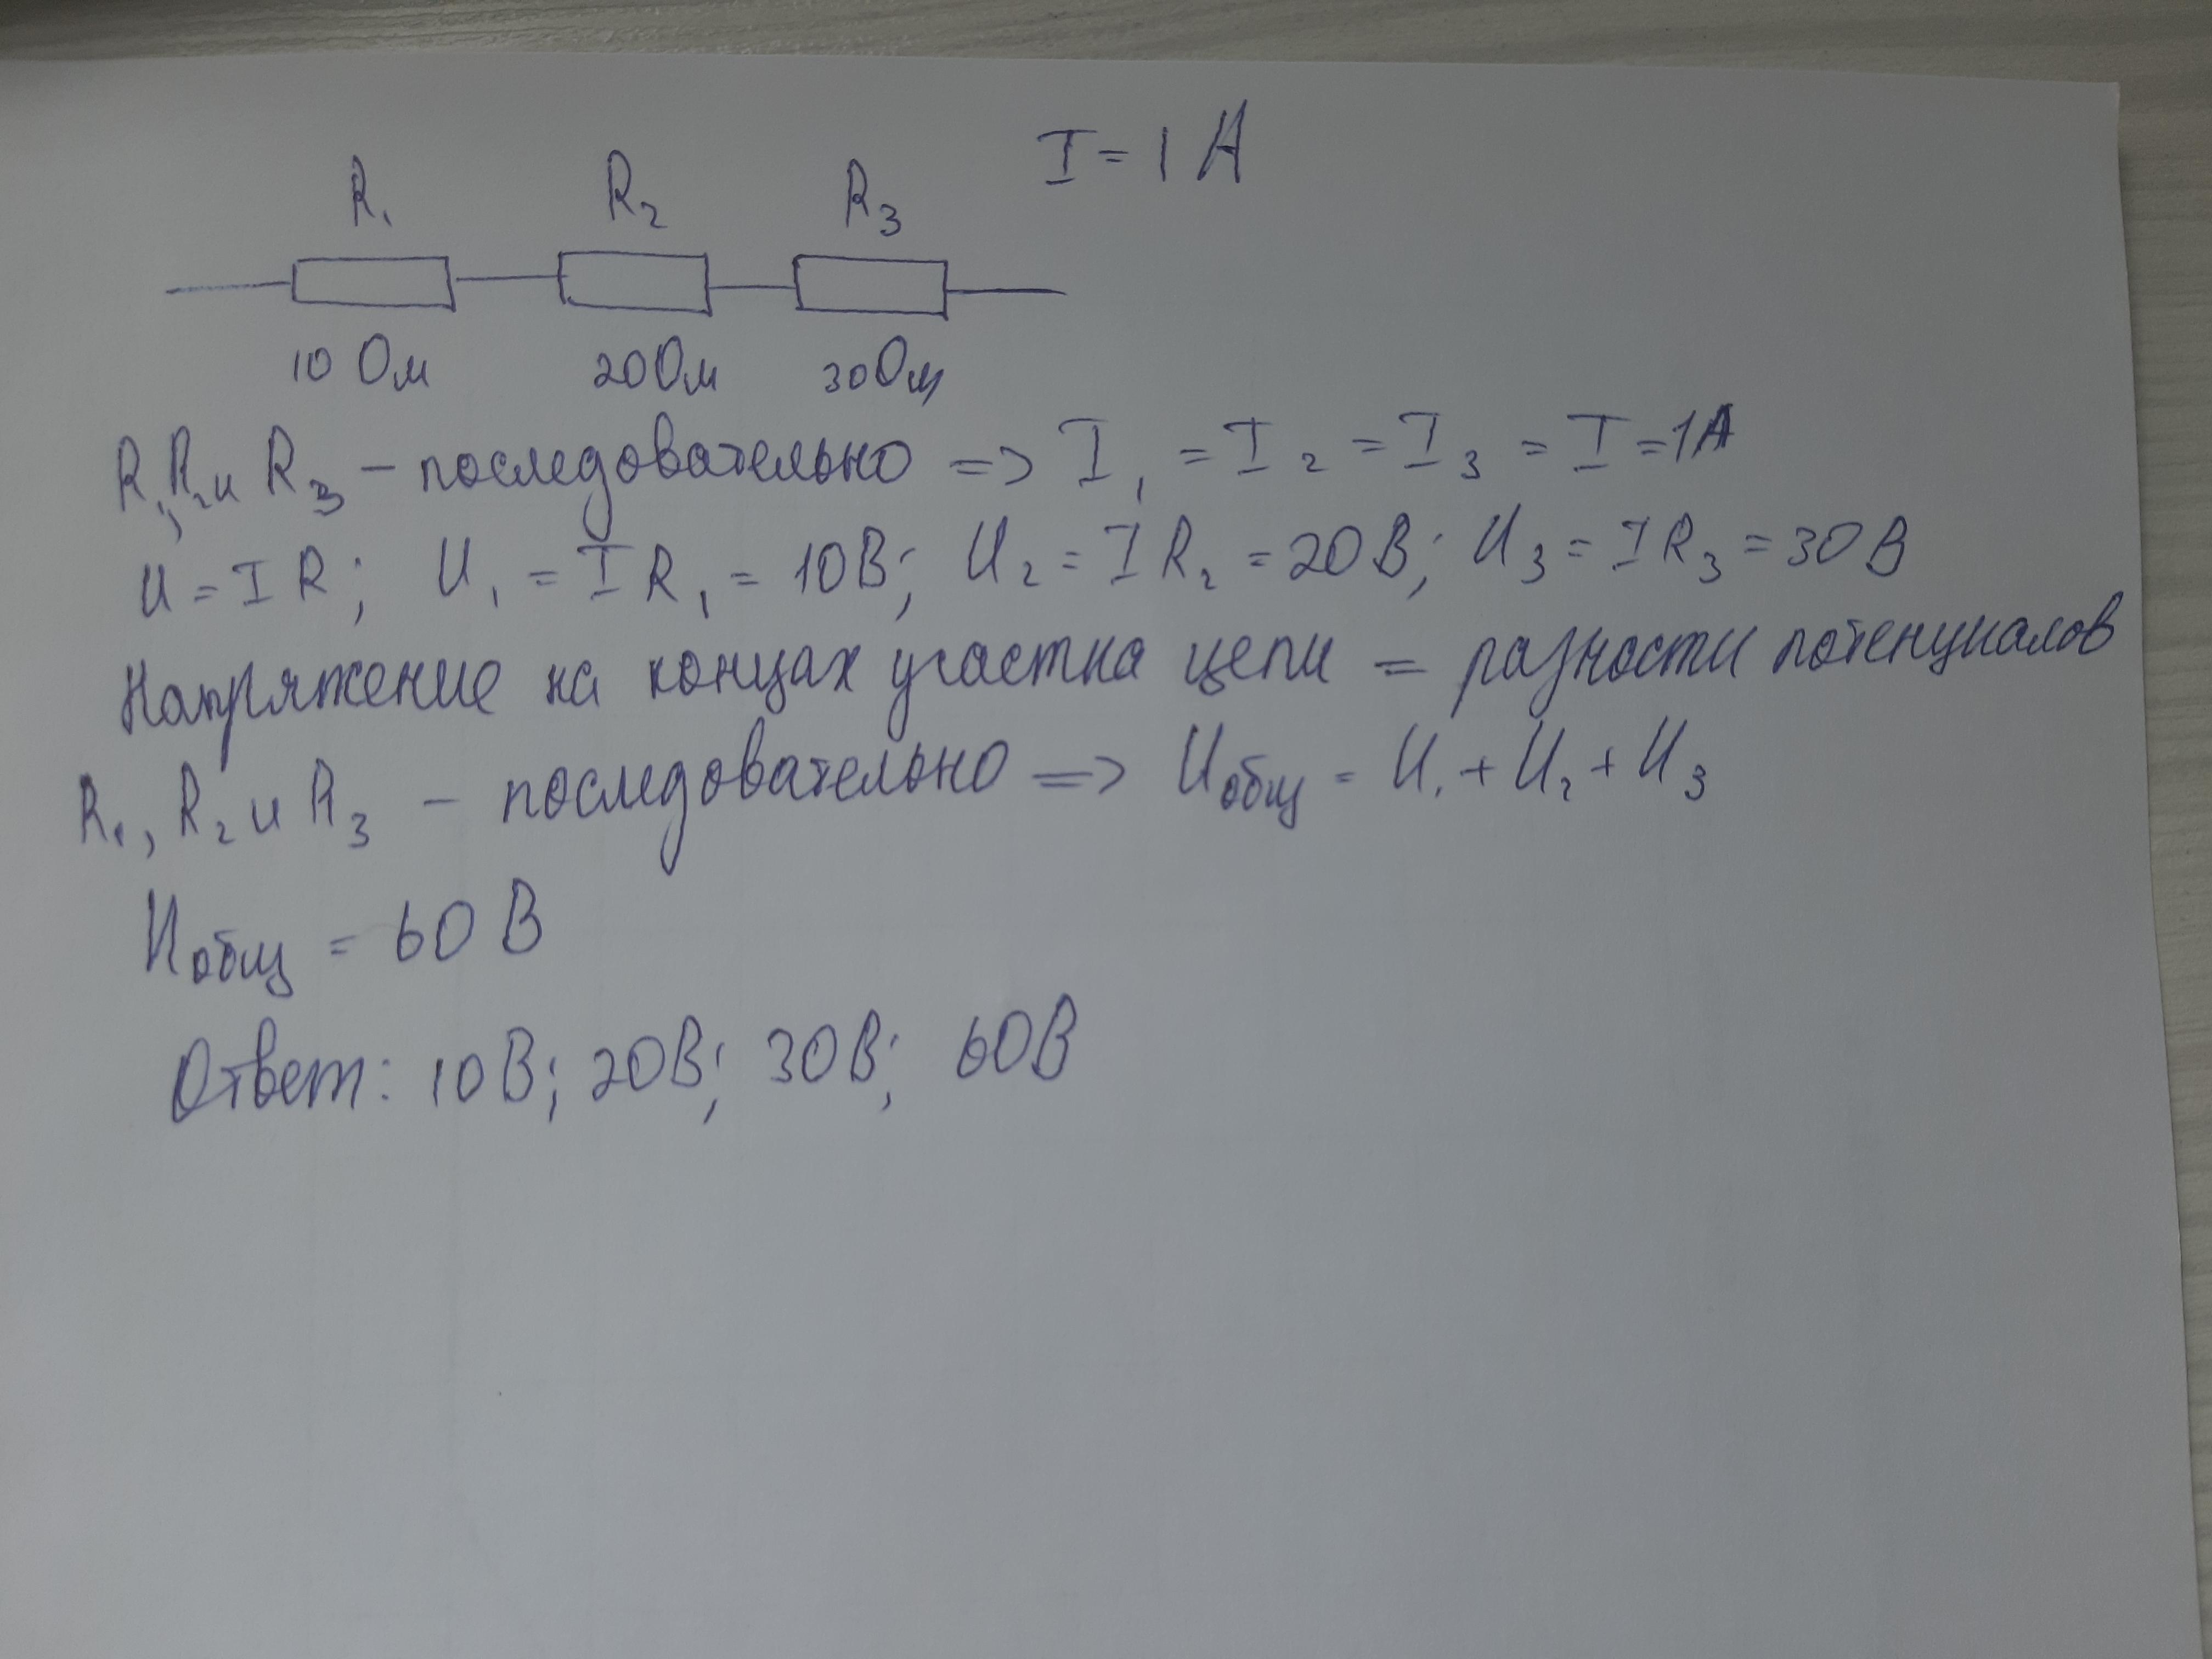 I = 1 А
R₁ R₂ R₃
10 Ом 20 Ом 30 Ом
R₁, R₂ и R₃ – последовательно => I₁ = I₂ = I₃ = I = 1А
U = I R; U₁ = I R₁ = 10В; U₂ = I R₂ = 20В; U₃ = I R₃ = 30В
Напряжение на концах участка цепи = разности потенциалов
R₁, R₂ и R₃ – последовательно => Uобщ = U₁ + U₂ + U₃
Uобщ = 60 В
Ответ: 10В; 20В; 30В; 60В